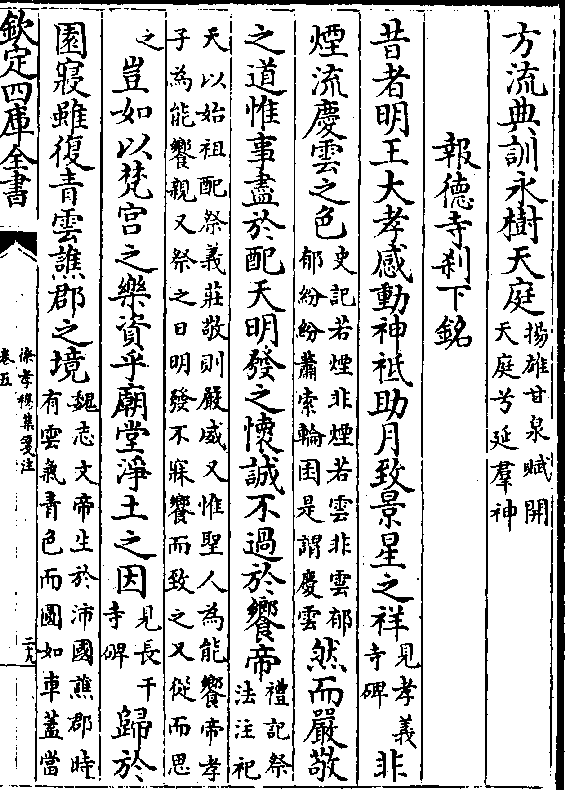 方流典訓永樹天庭揚雄甘泉賦開
天庭兮延羣神
報德寺刹下銘
昔者明王大孝感動神祇助月致景星之祥見孝義
寺碑非
煙流慶雲之色史記若煙非煙若雲非雲郁
郁紛紛蕭索輪囷是謂慶雲然而嚴敬
之道惟事盡於配天明發之懷誠不過於饗帝禮記祭
法注祀
天以始祖配祭義莊敬則嚴威又惟聖人為能饗帝孝
子為能饗親又祭之日明發不寐饗而致之又從而思
之豈如以梵宫之樂資乎廟堂淨土之因見長干
寺碑歸於
園寢雖復青雲譙郡之境魏志文帝生於沛國譙郡時
有雲氣青色而圜如車蓋當
欽定四庫全書
徐孝穆集箋注
卷五
二九